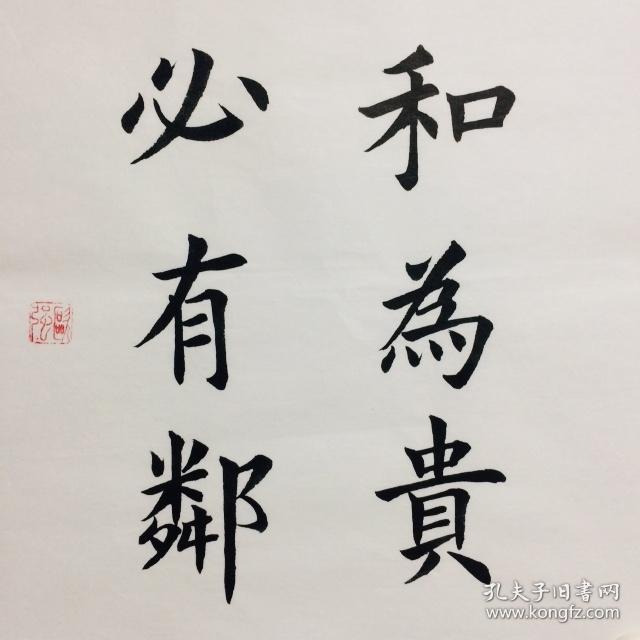 和為貴
必有鄰
孔夫子旧书网
www.kongfz.com